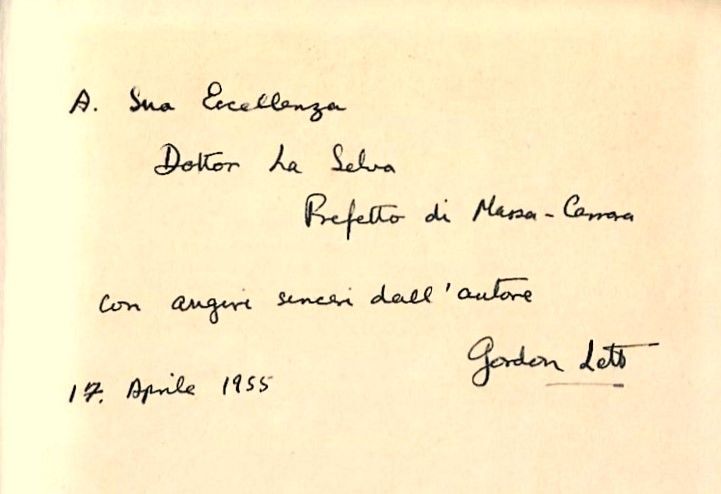 A. Sua Eccellenza
Dottor La Selva
Prefetto di Massa-Carrara
con auguri sinceri dall'autore
Gordon Lett
17. Aprile 1955